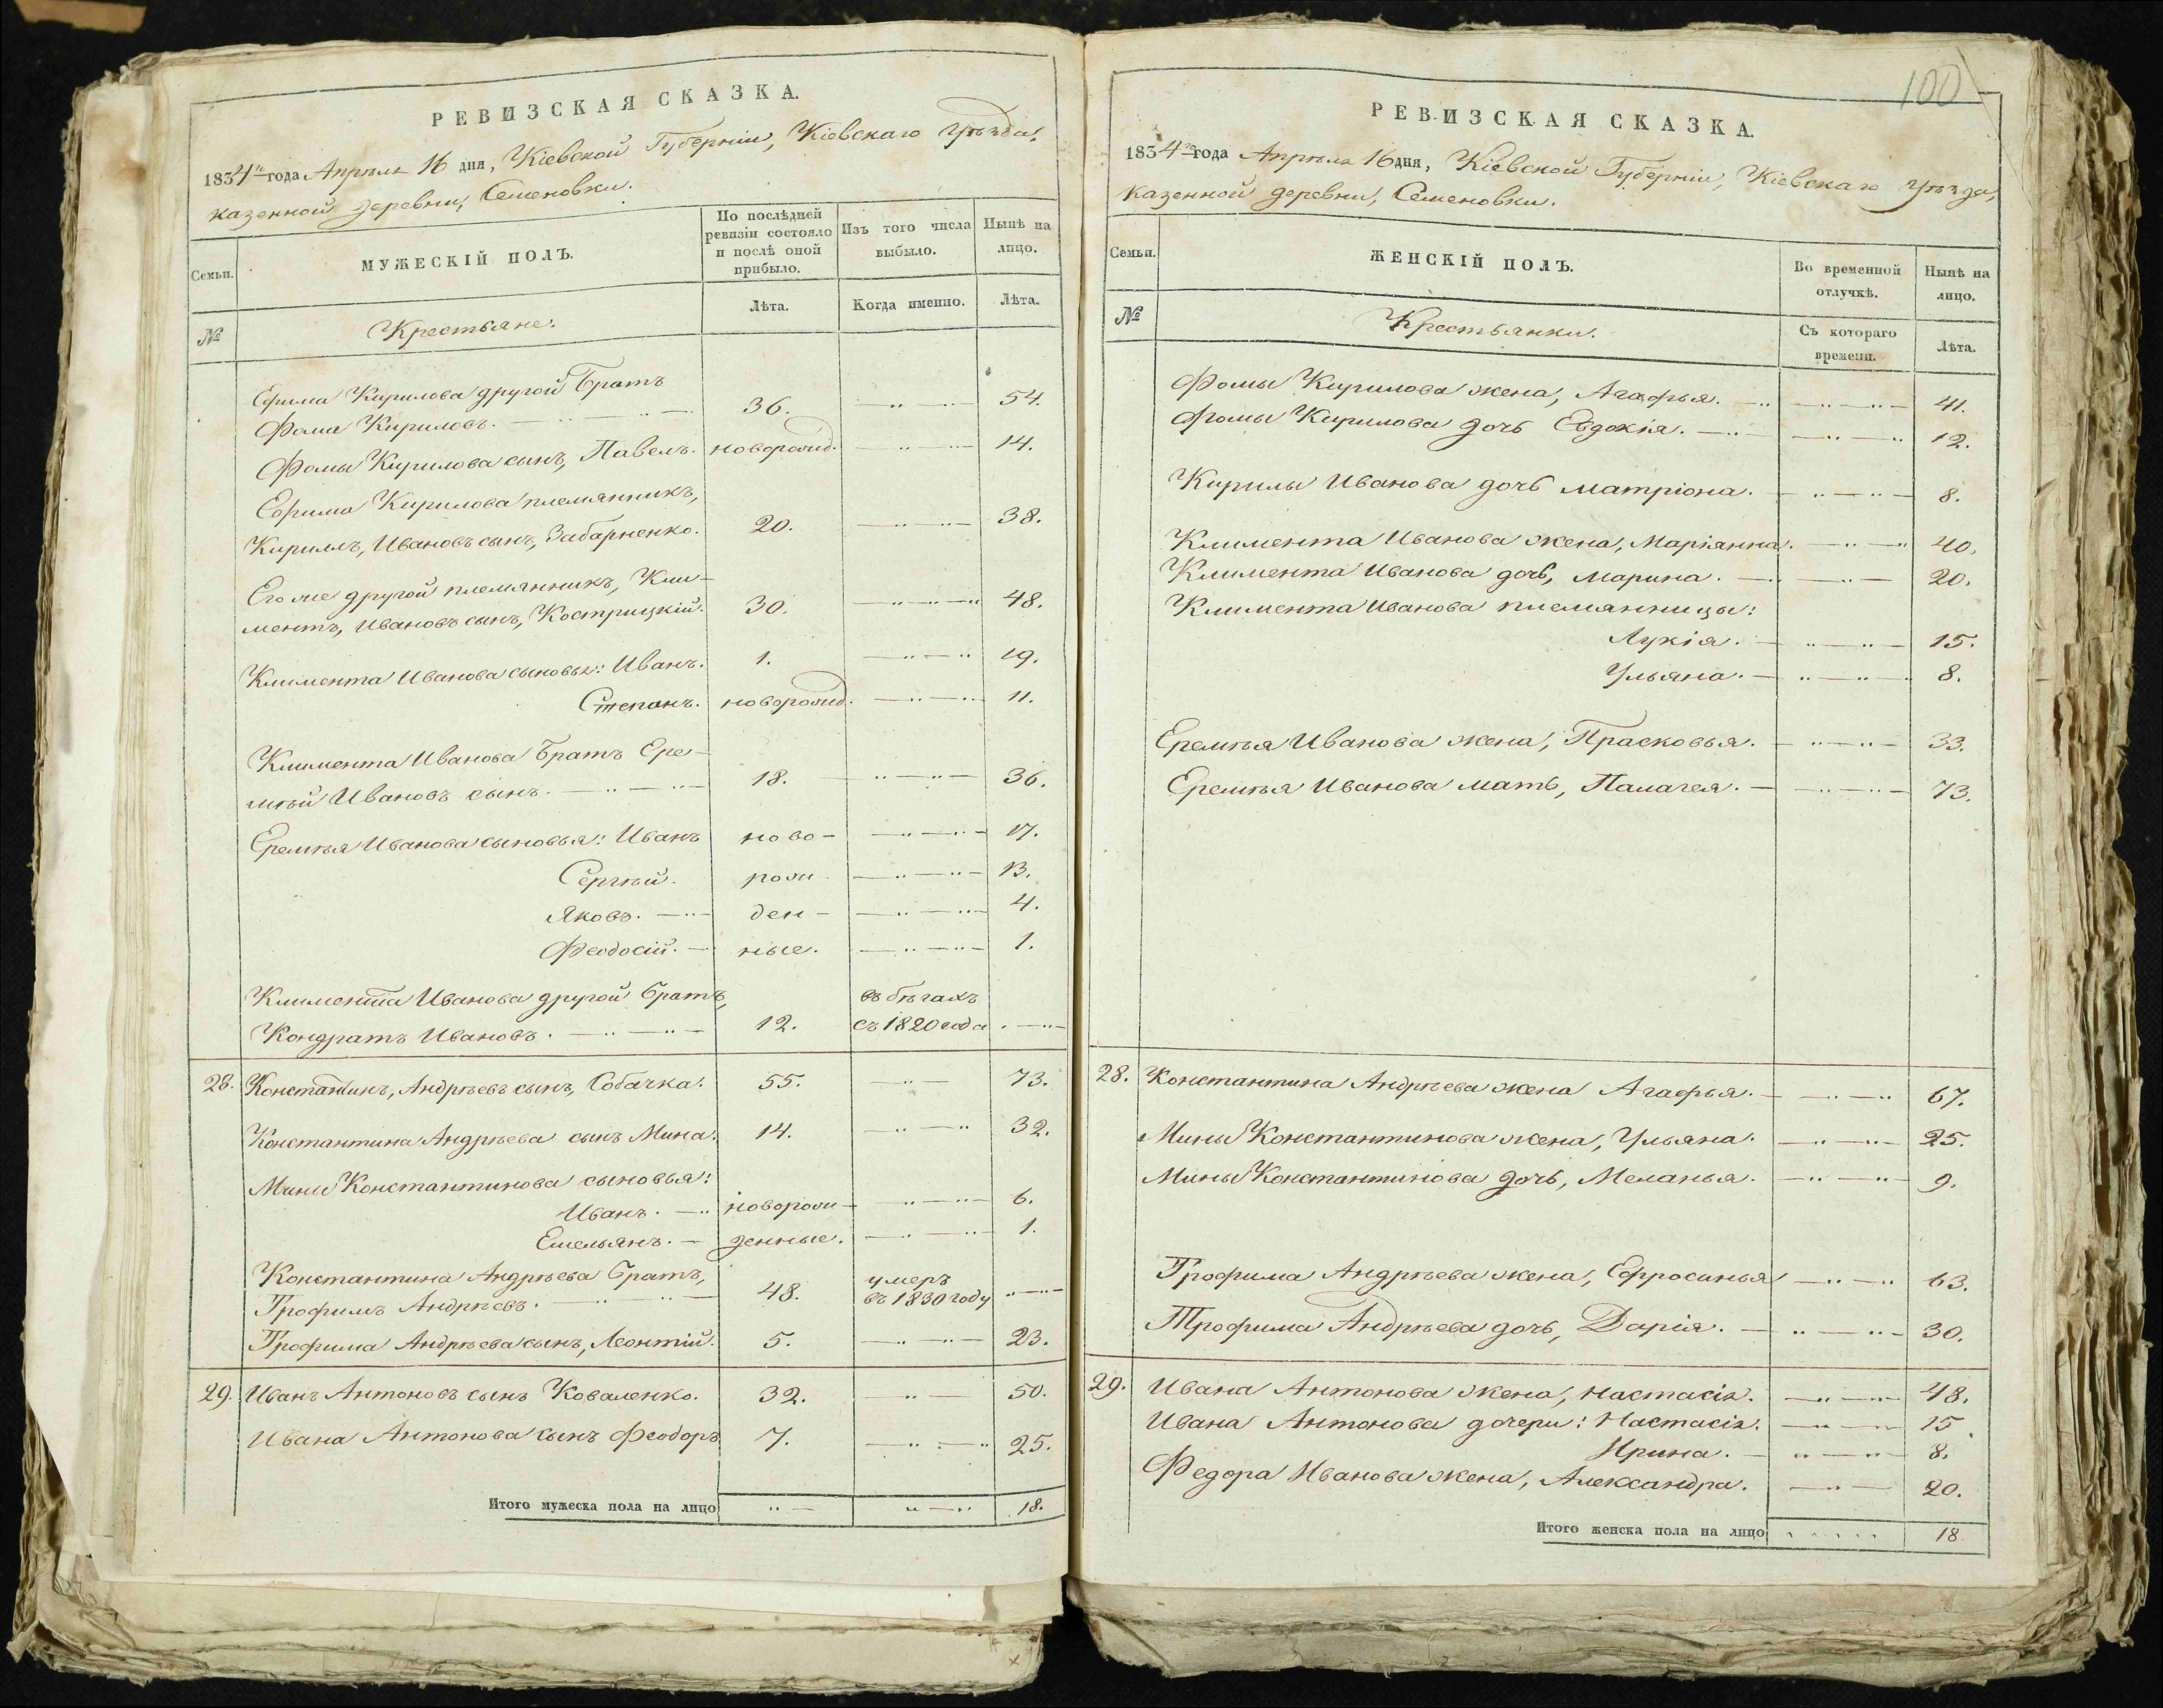 РЕВИЗСКАЯ СКАЗКА.
1834го года Апрѣля 16 дня, Кіевской Губерніи, Кіевскаго Уѣзда,
казенной деревни, Семеновки.
Семьи.
МУЖЕСКІЙ ПОЛЪ.
По послѣдней
ревизіи состояло
и послѣ оной
прибыло.
Изъ того числа
выбыло.
Нынѣ на
лицо.
№
Крестьяне.
Лѣта.
Когда именно.
Лѣта.
Ефима Кирилова другой Братъ
Фома Кириловъ. 36. 54.
Фомы Кирилова сынъ, Павелъ. новорожд. 14.
Ефима Кирилова племянникъ,
Кириллъ, Ивановъ сынъ, Забарненко. 20. 38.
Его же другой племянникъ, Кли-
ментъ, Ивановъ сынъ, Кострицкій. 30. 48.
Климента Иванова сыновья: Иванъ. 1. 19.
Степанъ. новорожд. 11.
Климента Иванова Братъ Ере-
мѣй Ивановъ сынъ. 18. 36.
Еремѣя Иванова сыновья: Иванъ ново- 17.
Сергѣй. рож 13.
Яковъ. ден- 4.
Феодосій. ные. 1.
Климента Иванова другой братъ, въ бѣгахъ
Кондратъ Ивановъ. 12. съ 1820 года.
28. Константинъ, Андрѣевъ сынъ, Собачка. 55. 73.
Константина Андрѣева сынъ Мина. 14. 32.
Мины Константинова сыновья:
Иванъ. новорож- 6.
Емельянъ. денные. 1.
Константина Андрѣева братъ, умеръ
Трофимъ Андрѣевъ. 48. въ 1830 году
Трофима Андрѣева сынъ, Леонтій. 5. 23.
29. Иванъ Антоновъ сынъ Коваленко. 32. 50.
Ивана Антонова сынъ Феодоръ 7. 25.
Итого мужеска пола на лицо 18.
100
РЕВИЗСКАЯ СКАЗКА.
1834го года Апрѣля 16 дня, Кіевской Губерніи, Кіевскаго Уѣзда,
казенной деревни, Семеновки.
Семьи.
ЖЕНСКІЙ ПОЛЪ.
Во временной
отлучкѣ.
Нынѣ на
лицо.
№
Крестьянки.
Съ котораго
времени.
Лѣта.
Фомы Кирилова жена, Агафья. 41.
Фомы Кирилова дочь Евдокія. 12.
Кирилы Иванова дочь Матріона. 8.
Климента Иванова жена, Маріянна. 40.
Климента Иванова дочь, Марина. 20.
Климента Иванова племянницы:
Лукія. 15.
Ульяна. 8.
Еремѣя Иванова жена, Прасковья. 33.
Еремѣя Иванова мать, Палагея. 73.
28. Константина Андрѣева жена Агафья. 67.
Мины Константинова жена, Ульяна. 25.
Мины Константинова дочь, Меланья. 9.
Трофима Андрѣева жена, Ефросинья 63.
Трофима Андрѣева дочь, Дарія. 30.
29. Ивана Антонова жена, Настасія. 48.
Ивана Антонова дочери: Настасія. 15.
Ирина. 8.
Федора Иванова жена, Александра. 20.
Итого женска пола на лицо 18.